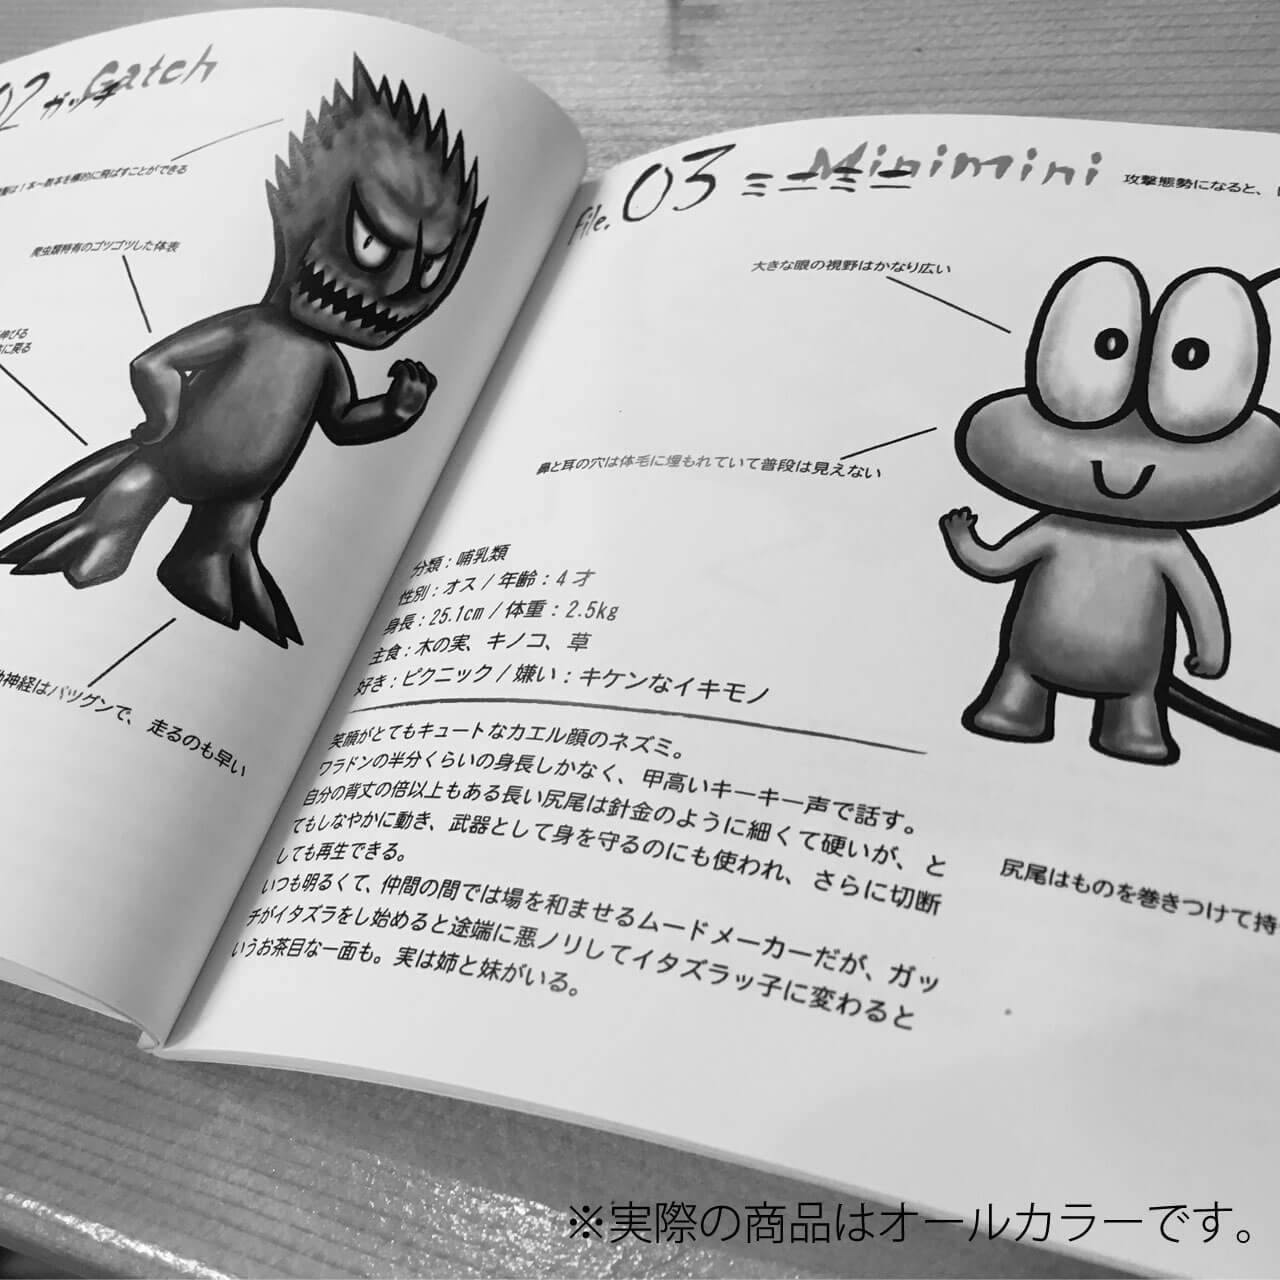 02 ガッチ Gatch
本~数本を標的に飛ばすことができる
爬虫類特有のゴツゴツした体表
伸びる
に戻る
神経はバツグンで、走るのも早い
File. 03 ミニミニ Minimini
攻撃態勢になると、
大きな眼の視野はかなり広い
鼻と耳の穴は体毛に埋もれていて普段は見えない
分類：哺乳類
性別：オス / 年齢：4才
身長：25.1cm / 体重：2.5kg
主食：木の実、キノコ、草
好き：ピクニック / 嫌い：キケンなイキモノ
笑顔がとてもキュートなカエル顔のネズミ。
ワラドンの半分くらいの身長しかなく、甲高いキーキー声で話す。
自分の背丈の倍以上もある長い尻尾は針金のように細くて硬いが、と
てもしなやかに動き、武器として身を守るのにも使われ、さらに切断
しても再生できる。
いつも明るくて、仲間の間では場を和ませるムードメーカーだが、ガッ
チがイタズラをし始めると途端に悪ノリしてイタズラッ子に変わると
いうお茶目な一面も。実は姉と妹がいる。
尻尾はものを巻きつけて持
※実際の商品はオールカラーです。